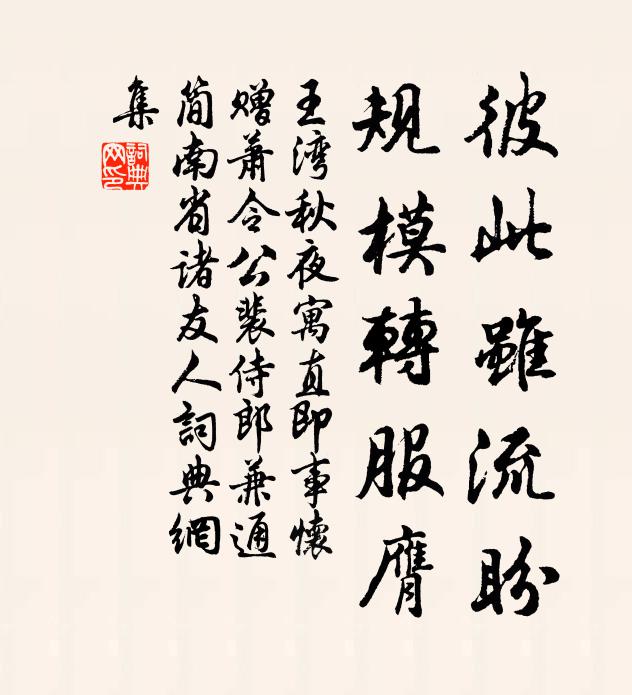 彼此雖流盼
規模轉服膺
王湾秋夜寓直即事懷
赠蕭令公裴侍郎兼通
简南省诸友人詞典網
集
詞典
网印